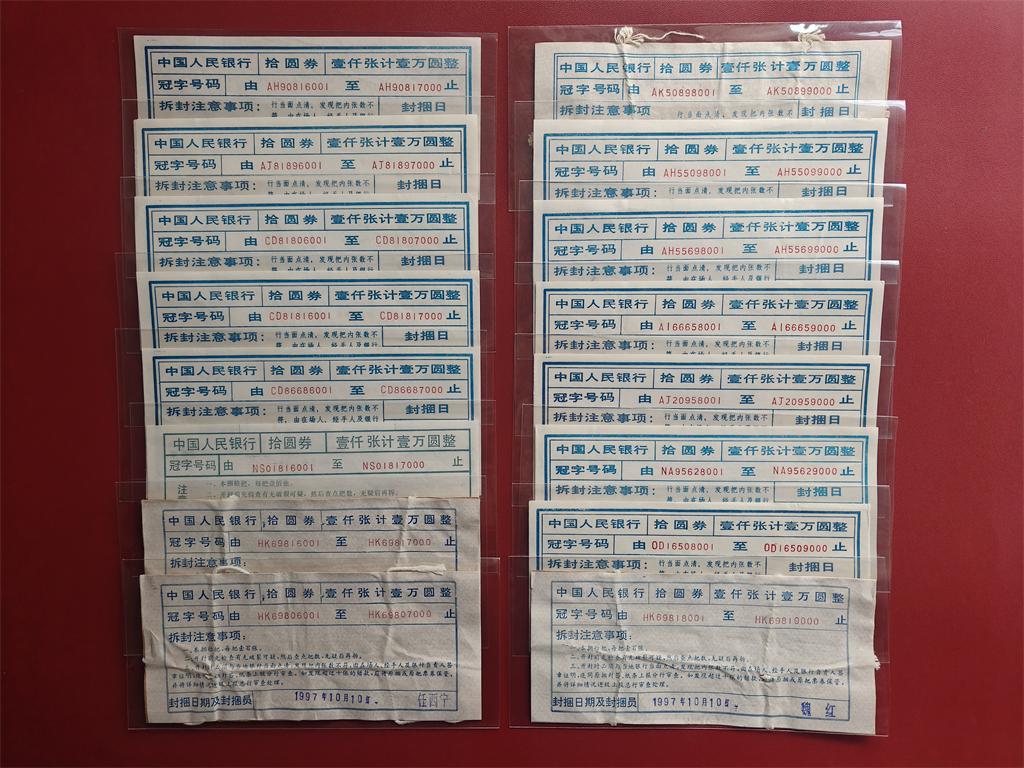 中国人民银行 拾圆券 壹仟张计壹万圆整
冠字号码 由 AH90816001 至 AH90817000 止
拆封注意事项： 行当面点清，发现把内张数不 封捆日
符，由在场人、经手人及银行
中国人民银行 拾圆券 壹仟张计壹万圆整
冠字号码 由 AJ81896001 至 AJ81897000 止
拆封注意事项： 行当面点清，发现把内张数不 封捆日
符，由在场人、经手人及银行
中国人民银行 拾圆券 壹仟张计壹万圆整
冠字号码 由 CD81806001 至 CD81807000 止
拆封注意事项： 行当面点清，发现把内张数不 封捆日
符，由在场人、经手人及银行
中国人民银行 拾圆券 壹仟张计壹万圆整
冠字号码 由 CD81816001 至 CD81817000 止
拆封注意事项： 行当面点清，发现把内张数不 封捆日
符，由在场人、经手人及银行
中国人民银行 拾圆券 壹仟张计壹万圆整
冠字号码 由 CD86686001 至 CD86687000 止
拆封注意事项： 行当面点清，发现把内张数不 封捆日
符，由在场人、经手人及银行
中国人民银行 拾圆券 壹仟张计壹万圆整
冠字号码 由 NS01816001 至 NS01817000 止
注 一、本捆拾把，每把壹佰张。
二、开封前先检查有无破裂可疑，然后查点把数，无疑后再拆。
中国人民银行 拾圆券 壹仟张计壹万圆整
冠字号码由 HK69816001 至 HK69817000 止
拆封注意事项：
中国人民银行 拾圆券 壹仟张计壹万圆整
冠字号码由 HK69806001 至 HK69807000 止
拆封注意事项：
一、本捆拾把，每把壹百张。
二、开封前先检查有无破裂可疑，然后查点把数，无疑后再拆。
三、开封时必须与当地银行当面点清，发现把内张数不符，由在场人、经手人及银行负责人签
封捆日期及封捆员 1997年10月10日 任西宁
中国人民银行 拾圆券 壹仟张计壹万圆整
冠字号码 由 AK50898001 至 AK50899000 止
拆封注意事项 行当面点清，发现把内张数不 封捆日
中国人民银行 拾圆券 壹仟张计壹万圆整
冠字号码 由 AH55098001 至 AH55099000 止
拆封注意事项： 行当面点清，发现把内张数不 封捆日
符，由在场人、经手人及银行
中国人民银行 拾圆券 壹仟张计壹万圆整
冠字号码 由 AH55698001 至 AH55699000 止
拆封注意事项： 行当面点清，发现把内张数不 封捆日
符，由在场人、经手人及银行
中国人民银行 拾圆券 壹仟张计壹万圆整
冠字号码 由 AI66658001 至 AI66659000 止
拆封注意事项： 行当面点清，发现把内张数不 封捆日
中国人民银行 拾圆券 壹仟张计壹万圆整
冠字号码 由 AJ20958001 至 AJ20959000 止
拆封注意事项： 行当面点清，发现把内张数不 封捆日
中国人民银行 拾圆券 壹仟张计壹万圆整
冠字号码 由 NA95628001 至 NA95629000 止
拆封注意事项： 行当面点清，发现把内张数不 封捆日
符，由在场人、经手人及银行
中国人民银行 拾圆券 壹仟张计壹万圆整
冠字号码 由 OD16508001 至 OD16509000 止
拆封注意事项： 行当面点清，发现把内张数不 封捆日
中国人民银行 拾圆券 壹仟张计壹万圆整
冠字号码由 HK69818001 至 HK69819000 止
拆封注意事项：
一、本捆拾把，每把壹百张。
二、开封前先检查有无破裂可疑，然后查点把数，无疑后再拆。
封捆日期及封捆员 1997年10月10日 魏红